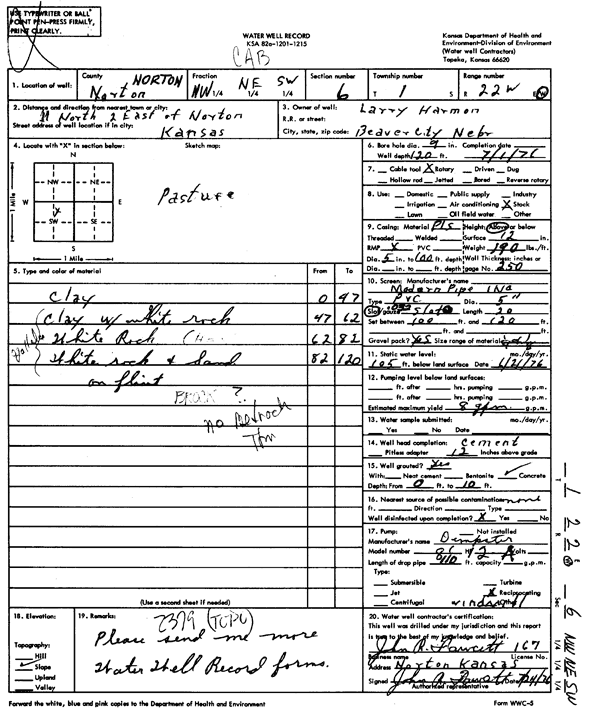 USE TYPEWRITER OR BALL
POINT PEN-PRESS FIRMLY,
PRINT CLEARLY.
WATER WELL RECORD
KSA 82a-1201-1215
CAB
Kansas Department of Health and
Environment-Division of Environment
(Water well Contractors)
Topeka, Kansas 66620
1. Location of well: County NORTON Norton Fraction NW 1/4 NE 1/4 SW 1/4 Section number 6 Township number T 1 S Range number R 22W E/W
2. Distance and direction from nearest town or city: 11 North 2 East of Norton
Street address of well location if in city: Kansas
3. Owner of well: Larry Harmon
R.R. or street:
City, state, zip code: Beaver City Nebr
4. Locate with "X" in section below:
Sketch map:
N
NW NE
W E
SW SE
X
S
1 Mile
1 Mile
Pasture
6. Bore hole dia. 9 in. Completion date
Well depth 120 ft. 7/1/76
7. Cable tool X Rotary Driven Dug
Hollow rod Jetted Bored Reverse rotary
8. Use: Domestic Public supply Industry
Irrigation Air conditioning X Stock
Lawn Oil field water Other
9. Casing: Material Pls Height: Above or below
Threaded Welded Surface 12 in.
RMP X PVC Weight 190 lbs./ft.
Dia. 5 in. to 100 ft. depth Wall Thickness: inches or
Dia. in. to ft. depth gage No. 250
5. Type and color of material From To
Clay 0 47
Clay w/ white rock 47 62
White Rock 62 82
White rock & Sand 82 120
on flint
no Bedrock
Tom
10. Screen: Manufacturer's name
Modern Pipe INd
Type PVC Dia. 5"
Slot/gauze Slots Length 20
Set between 100 ft. and 120 ft.
ft. and ft.
Gravel pack? yes Size range of material
11. Static water level: mo./day/yr.
105 ft. below land surface Date 6/21/76
12. Pumping level below land surfaces:
ft. after hrs. pumping g.p.m.
ft. after hrs. pumping g.p.m.
Estimated maximum yield 8 gpm g.p.m.
13. Water sample submitted: mo./day/yr.
Yes No Date
14. Well head completion: cement
Pitless adapter 12 Inches above grade
15. Well grouted? Yes
With: Neat cement Bentonite ✓ Concrete
Depth: From 0 ft. to 10 ft.
16. Nearest source of possible contamination: none
ft. Direction Type
Well disinfected upon completion? X Yes No
17. Pump: Not installed
Manufacturer's name Dempster
Model number HP Volts
Length of drop pipe 110 ft. capacity g.p.m.
Type:
Submersible Turbine
Jet X Reciprocating
Centrifugal
(Use a second sheet if needed)
18. Elevation:
Topography:
Hill
✓ Slope
Upland
Valley
19. Remarks: 2379 (TOPO)
Please send me more
Water Well Record forms.
20. Water well contractor's certification:
This well was drilled under my jurisdiction and this report
is true to the best of my knowledge and belief.
John R. Fawcett 167
Business name License No.
Address Norton Kansas
Signed John R. Fawcett Date
Authorized representative
Forward the white, blue and pink copies to the Department of Health and Environment
Form WWC-5
T 1 R 22 E W Sec 6 NW 1/4 NE 1/4 SW 1/4